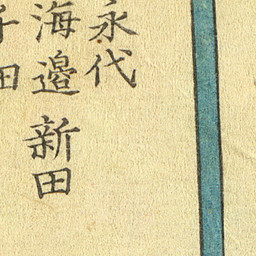 永代
海邉新田
田